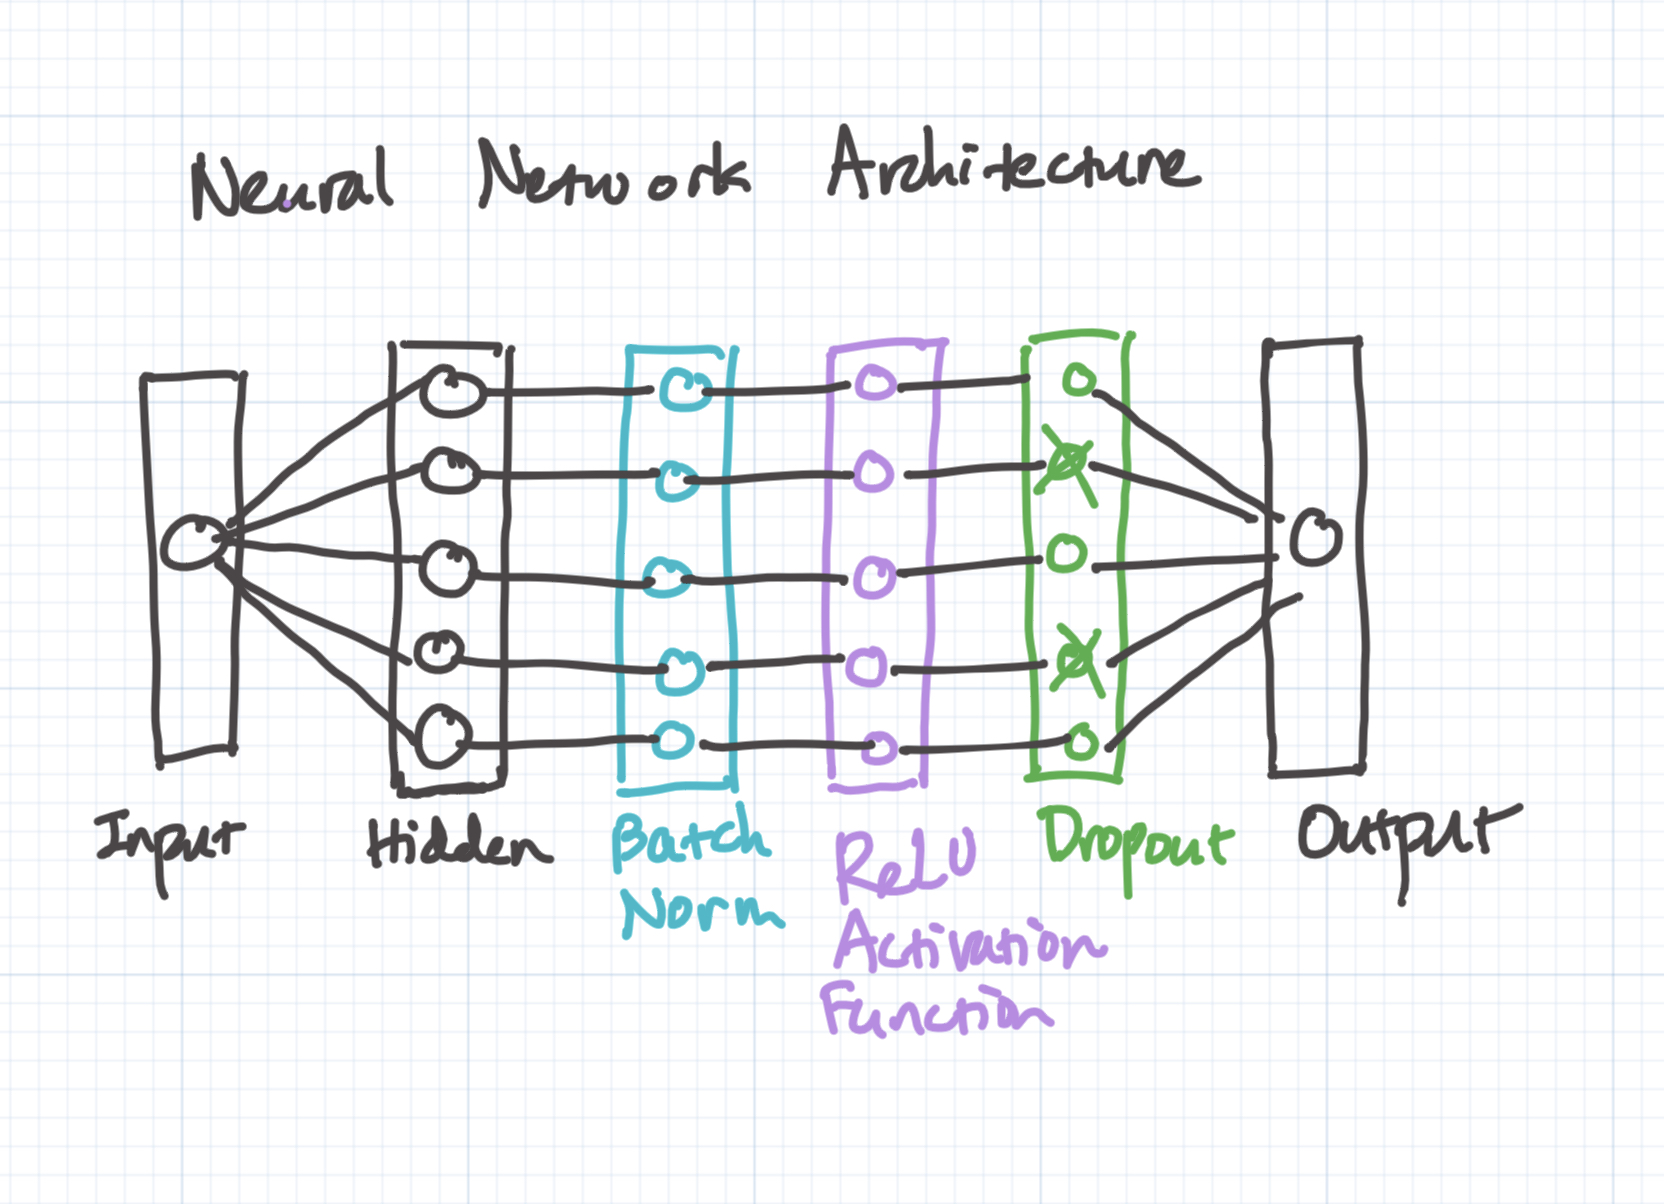 Neural Network Architecture
Input
Hidden
Batch
Norm
ReLU
Activation
Function
Dropout
Output